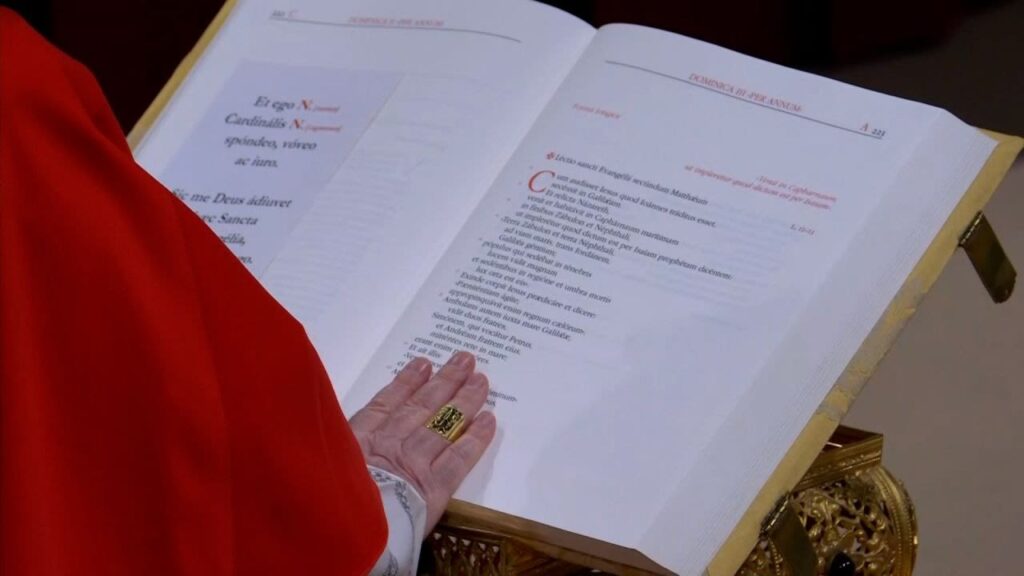 C DOMINICA II «PER ANNUM»
Et ego N. [nomen]
Cardinális N. [cognomen]
spóndeo, vóveo
ac iuro.
Sic me Deus ádiuvet
ec Sancta
DOMINICA III «PER ANNUM»
A 223
Forma longior
Venit in Capharnaum,
ut impleretur quod dictum est per Isaiam.
✠ Léctio sancti Evangélii secúndum Matthǽum
Cum audísset Iesus quod Ioánnes tráditus esset,
secéssit in Galilǽam.
Et relícta Názareth,
venit et habitávit in Caphárnaum marítimam
in fínibus Zábulon et Néphthali,
ut implerétur quod dictum est per Isaíam prophétam dicéntem:
«Terra Zábulon et terra Néphthali,
ad viam maris, trans Iordánem,
Galilǽa géntium;
pópulus qui sedébat in ténebris
lucem vidit magnam
et sedéntibus in regióne et umbra mortis
lux orta est eis».
Exínde cœpit Iesus prædicáre et dícere:
«Pæniténtiam ágite;
appropinquávit enim regnum cælórum».
Ámbulans autem iuxta mare Galilǽæ,
vidit duos fratres,
Simónem, qui vocátur Petrus,
et Andréam fratrem eius,
mitténtes rete in mare;
erant enim
Et ait illis